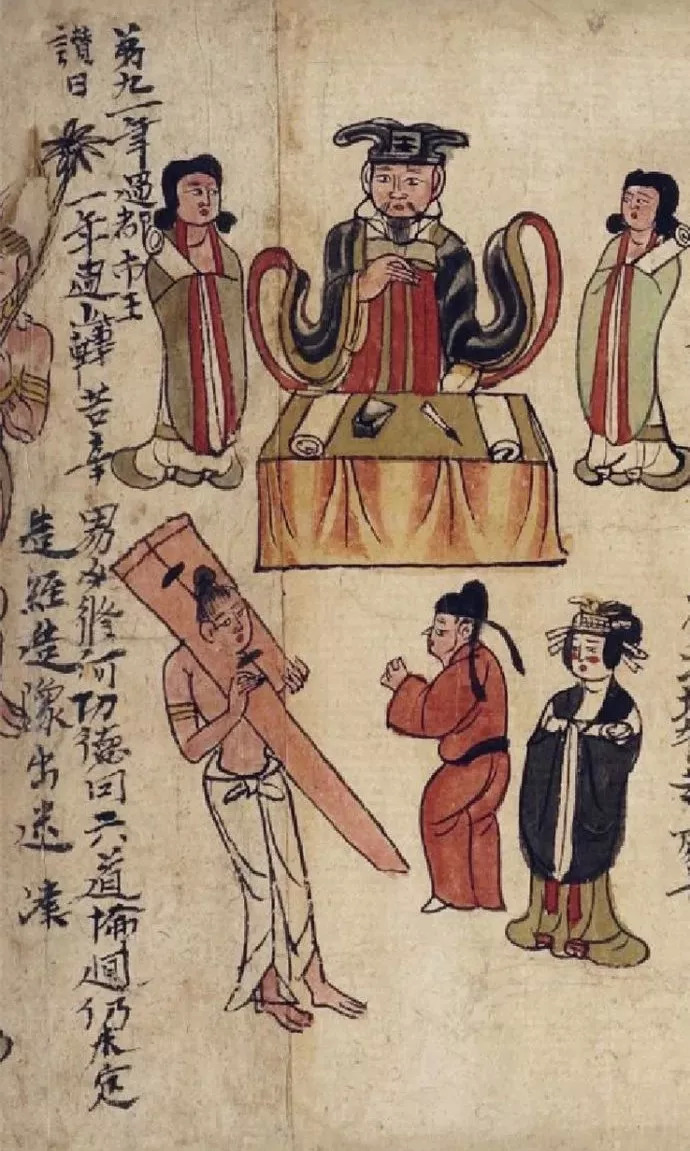 王
第九一年過都市王
讃曰
一年過此轉苦辛
男女修何功德因六道輪迴仍未定
造經造像出迷津